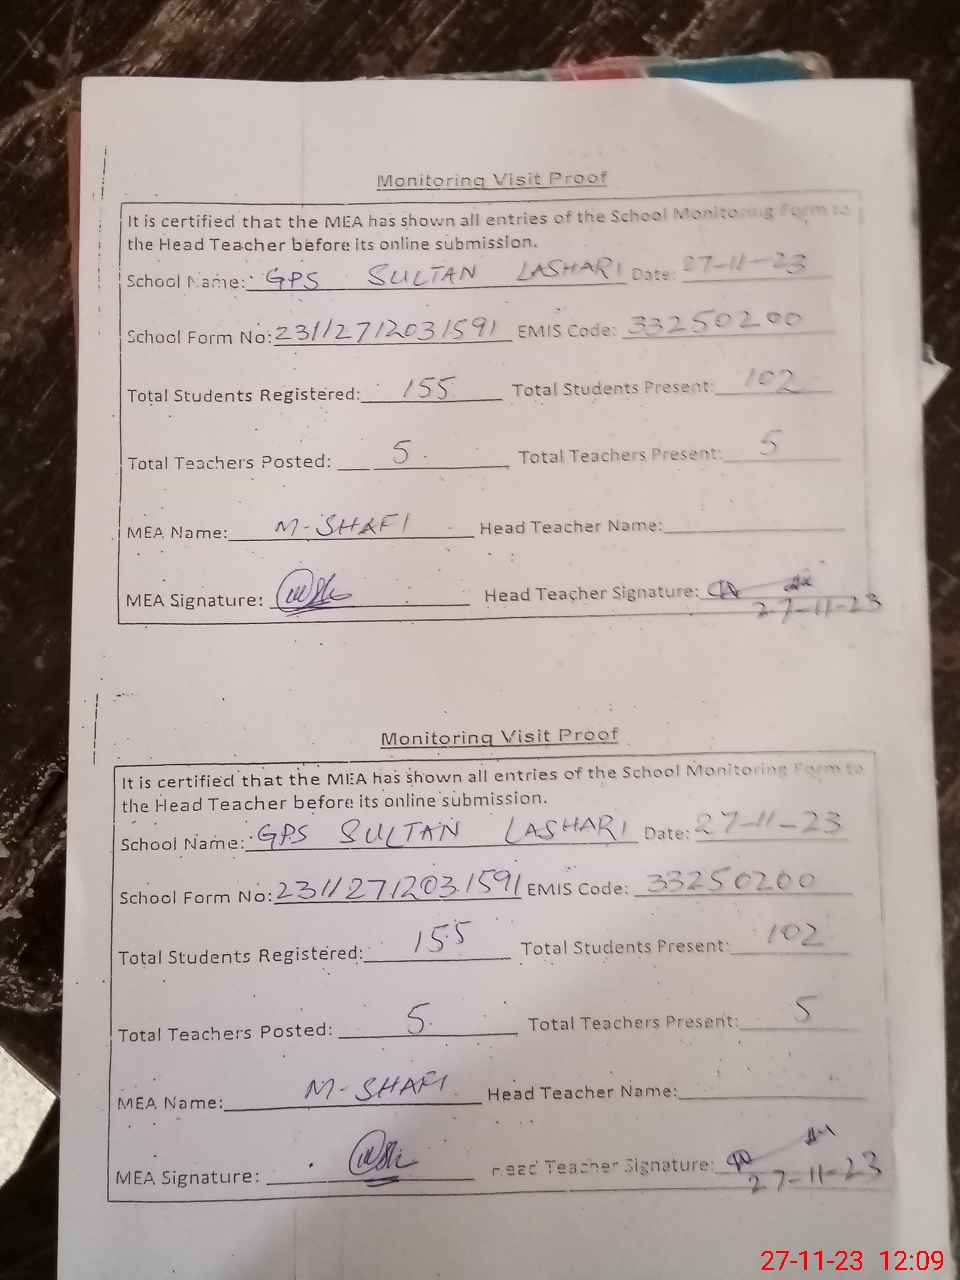 Monitoring Visit Proof
It is certified that the MEA has shown all entries of the School Monitoring Form to
the Head Teacher before its online submission.
School Name: GPS SULTAN LASHARI Date: 27-11-23
School Form No: 23112712031591 EMIS Code: 33250200
Total Students Registered: 155 Total Students Present: 102
Total Teachers Posted: 5 Total Teachers Present: 5
MEA Name: M-SHAFI Head Teacher Name:
MEA Signature: Head Teacher Signature:
27-11-23
Monitoring Visit Proof
It is certified that the MEA has shown all entries of the School Monitoring Form to
the Head Teacher before its online submission.
School Name: GPS SULTAN LASHARI Date: 27-11-23
School Form No: 23112712031591 EMIS Code: 33250200
Total Students Registered: 155 Total Students Present: 102
Total Teachers Posted: 5 Total Teachers Present: 5
MEA Name: M-SHAFI Head Teacher Name:
MEA Signature: Head Teacher Signature:
27-11-23
27-11-23 12:09